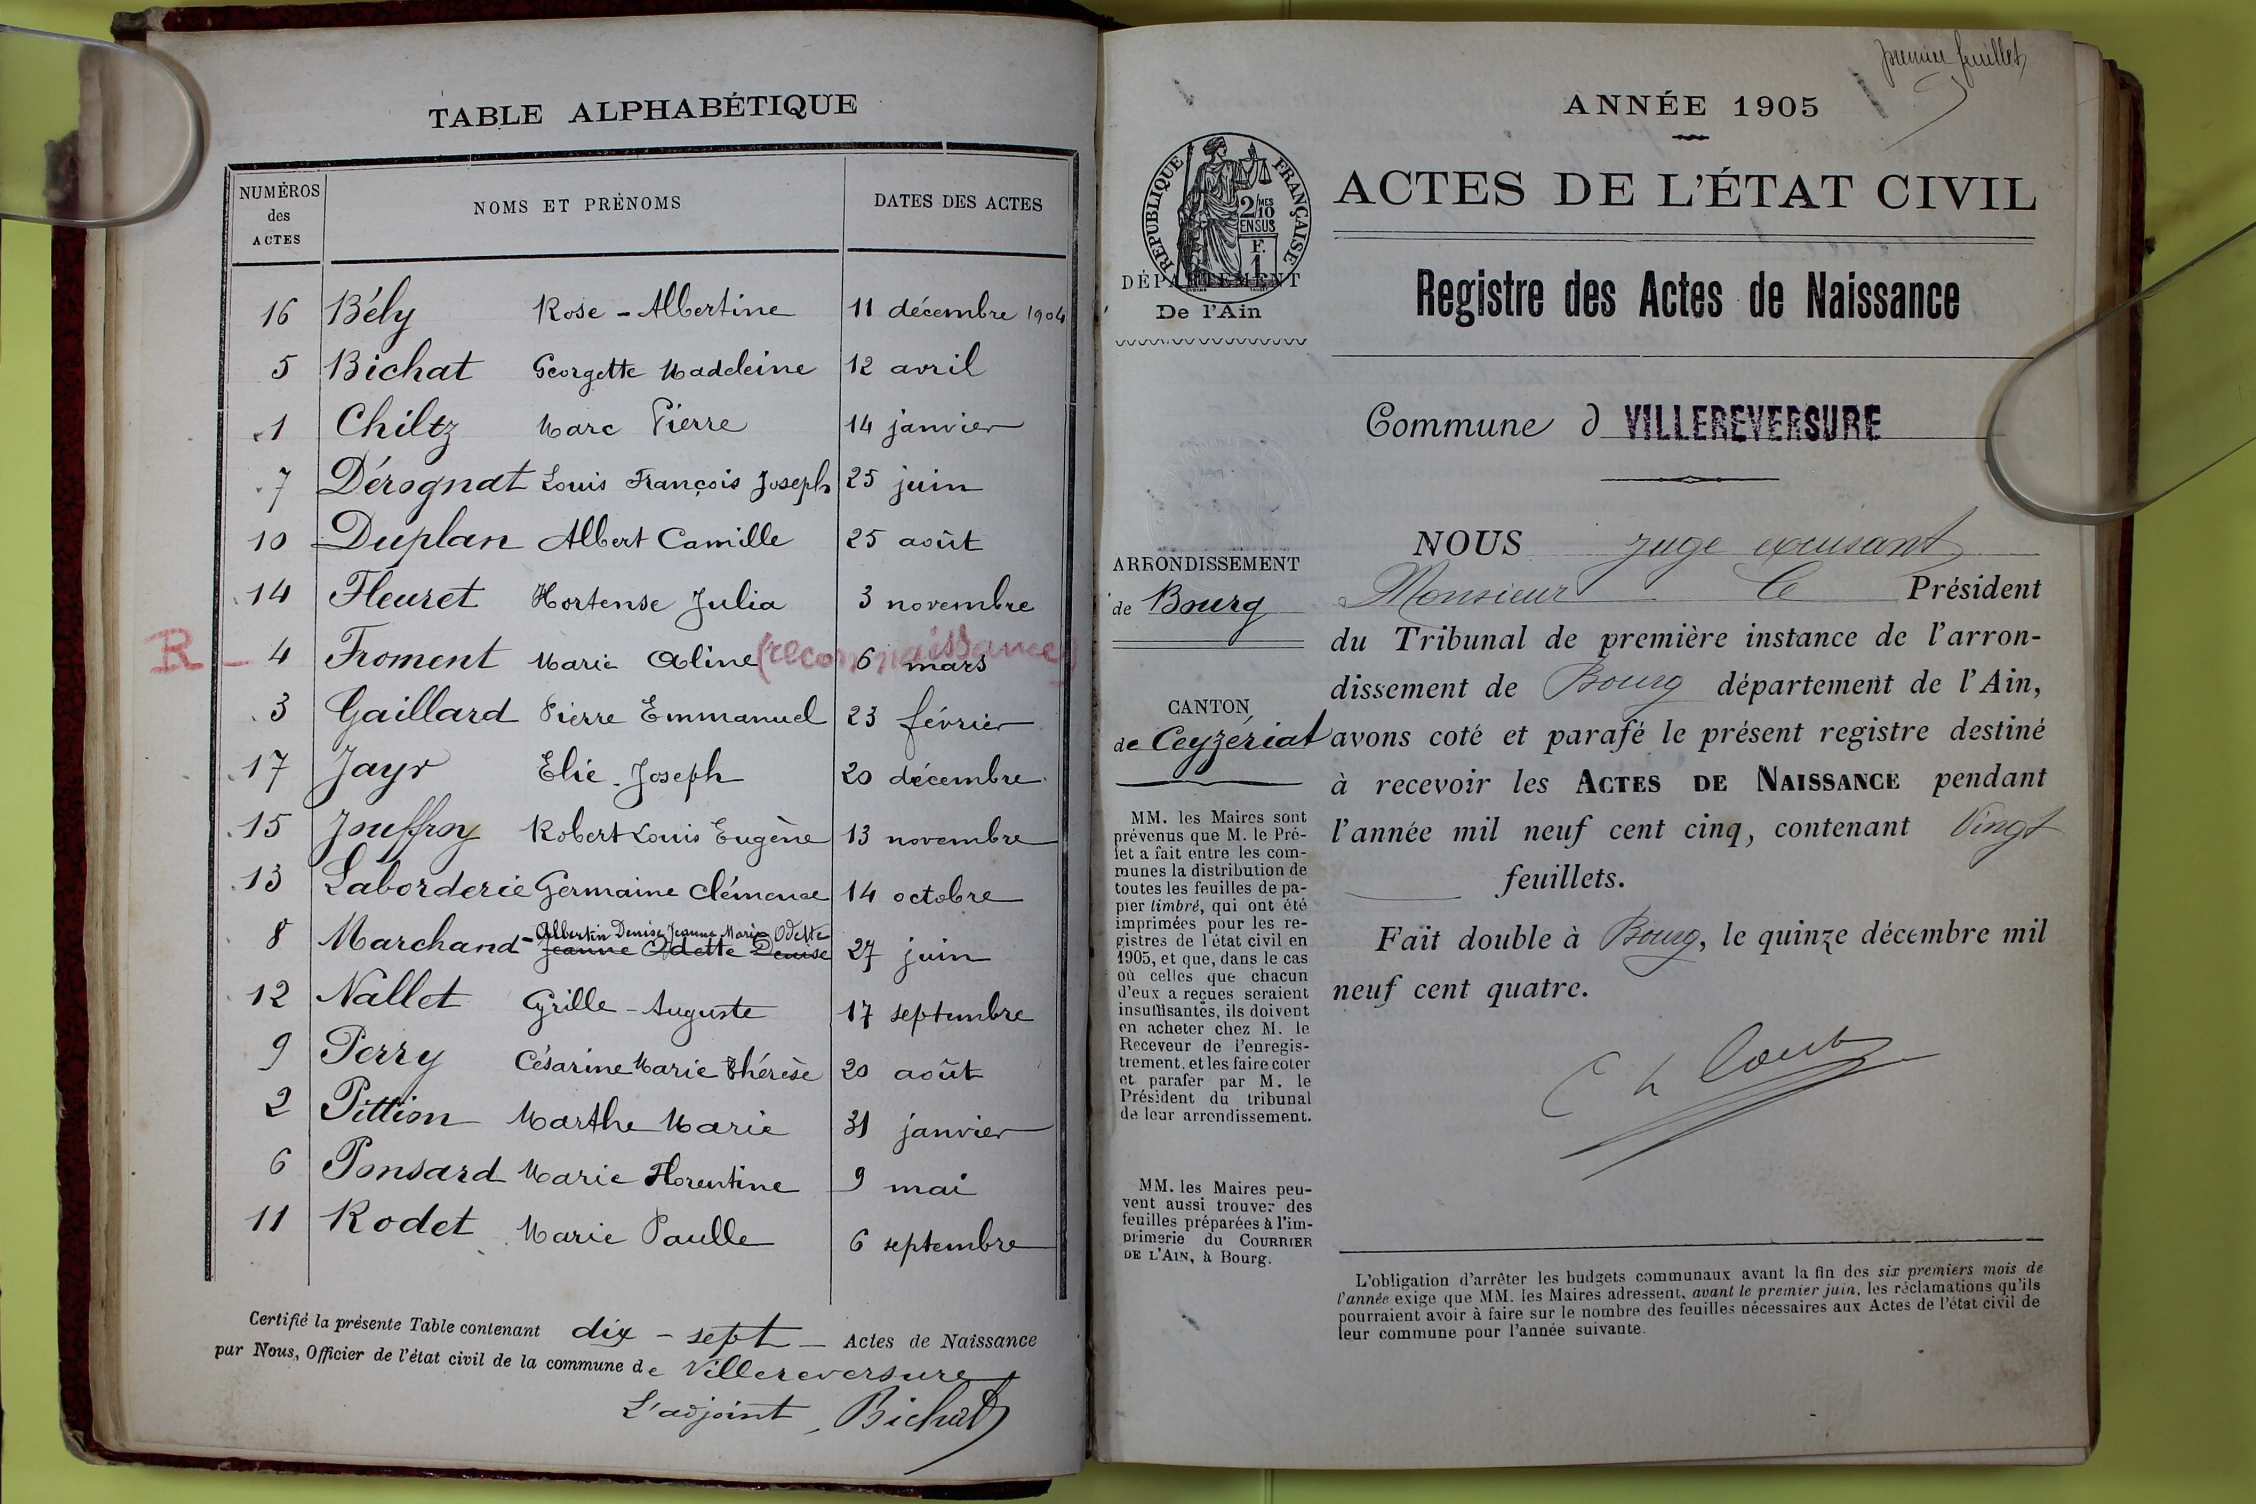 TABLE ALPHABÉTIQUE
NUMÉROS des ACTES NOMS ET PRÉNOMS DATES DES ACTES
16 Bély Rose - Albertine 11 décembre 1904
5 Bichat Georgette Madeleine 12 avril
1 Chiltz Marc Pierre 14 janvier
7 Dérognat Louis François Joseph 25 juin
10 Duplan Albert Camille 25 août
14 Fleuret Hortense Julia 3 novembre
R - 4 Froment Marie Aline (reconnaissance) 6 mars
3 Gaillard Pierre Emmanuel 23 février
17 Jayr Elie - Joseph 20 décembre
15 Jouffroy Robert Louis Eugène 13 novembre
13 Laborderie Germaine Clémence 14 octobre
Albertin Denise Jeanne Marie Odette
8 Marchand - Jeanne Odette Denise 27 juin
12 Nallet Cyrille - Auguste 17 septembre
9 Perry Césarine Marie Thérèse 20 août
2 Pittion Marthe Marie 31 janvier
6 Ponsard Marie Florentine 9 mai
11 Rodet Marie Paulle 6 septembre
Certifié la présente Table contenant dix - sept - Actes de Naissance
par Nous, Officier de l'état civil de la commune de Villereversure
L'adjoint, Bichat
premier feuillet
ANNÉE 1905
ACTES DE L'ÉTAT CIVIL
RÉPUBLIQUE FRANÇAISE
2/10 MES
EN SUS
F.
1
DÉPARTEMENT
De l'Ain
Registre des Actes de Naissance
Commune d VILLEREVERSURE
ARRONDISSEMENT
de Bourg
CANTON
de Ceyzériat
MM. les Maires sont
prévenus que M. le Pré-
fet a fait entre les com-
munes la distribution de
toutes les feuilles de pa-
pier timbré, qui ont été
imprimées pour les re-
gistres de l'état civil en
1905, et que, dans le cas
où celles que chacun
d'eux a reçues seraient
insuffisantes, ils doivent
en acheter chez M. le
Receveur de l'enregis-
trement, et les faire coter
et parafer par M. le
Président du tribunal
de leur arrondissement.
MM. les Maires peu-
vent aussi trouver des
feuilles préparées à l'im-
primerie du COURRIER
DE L'AIN, à Bourg.
NOUS juge
Monsieur le Président
du Tribunal de première instance de l'arron-
dissement de Bourg département de l'Ain,
avons coté et parafé le présent registre destiné
à recevoir les ACTES DE NAISSANCE pendant
l'année mil neuf cent cinq, contenant Vingt
feuillets.
Fait double à Bourg, le quinze décembre mil
neuf cent quatre.
L'obligation d'arrêter les budgets communaux avant la fin des six premiers mois de
l'année exige que MM. les Maires adressent, avant le premier juin, les réclamations qu'ils
pourraient avoir à faire sur le nombre des feuilles nécessaires aux Actes de l'état civil de
leur commune pour l'année suivante.